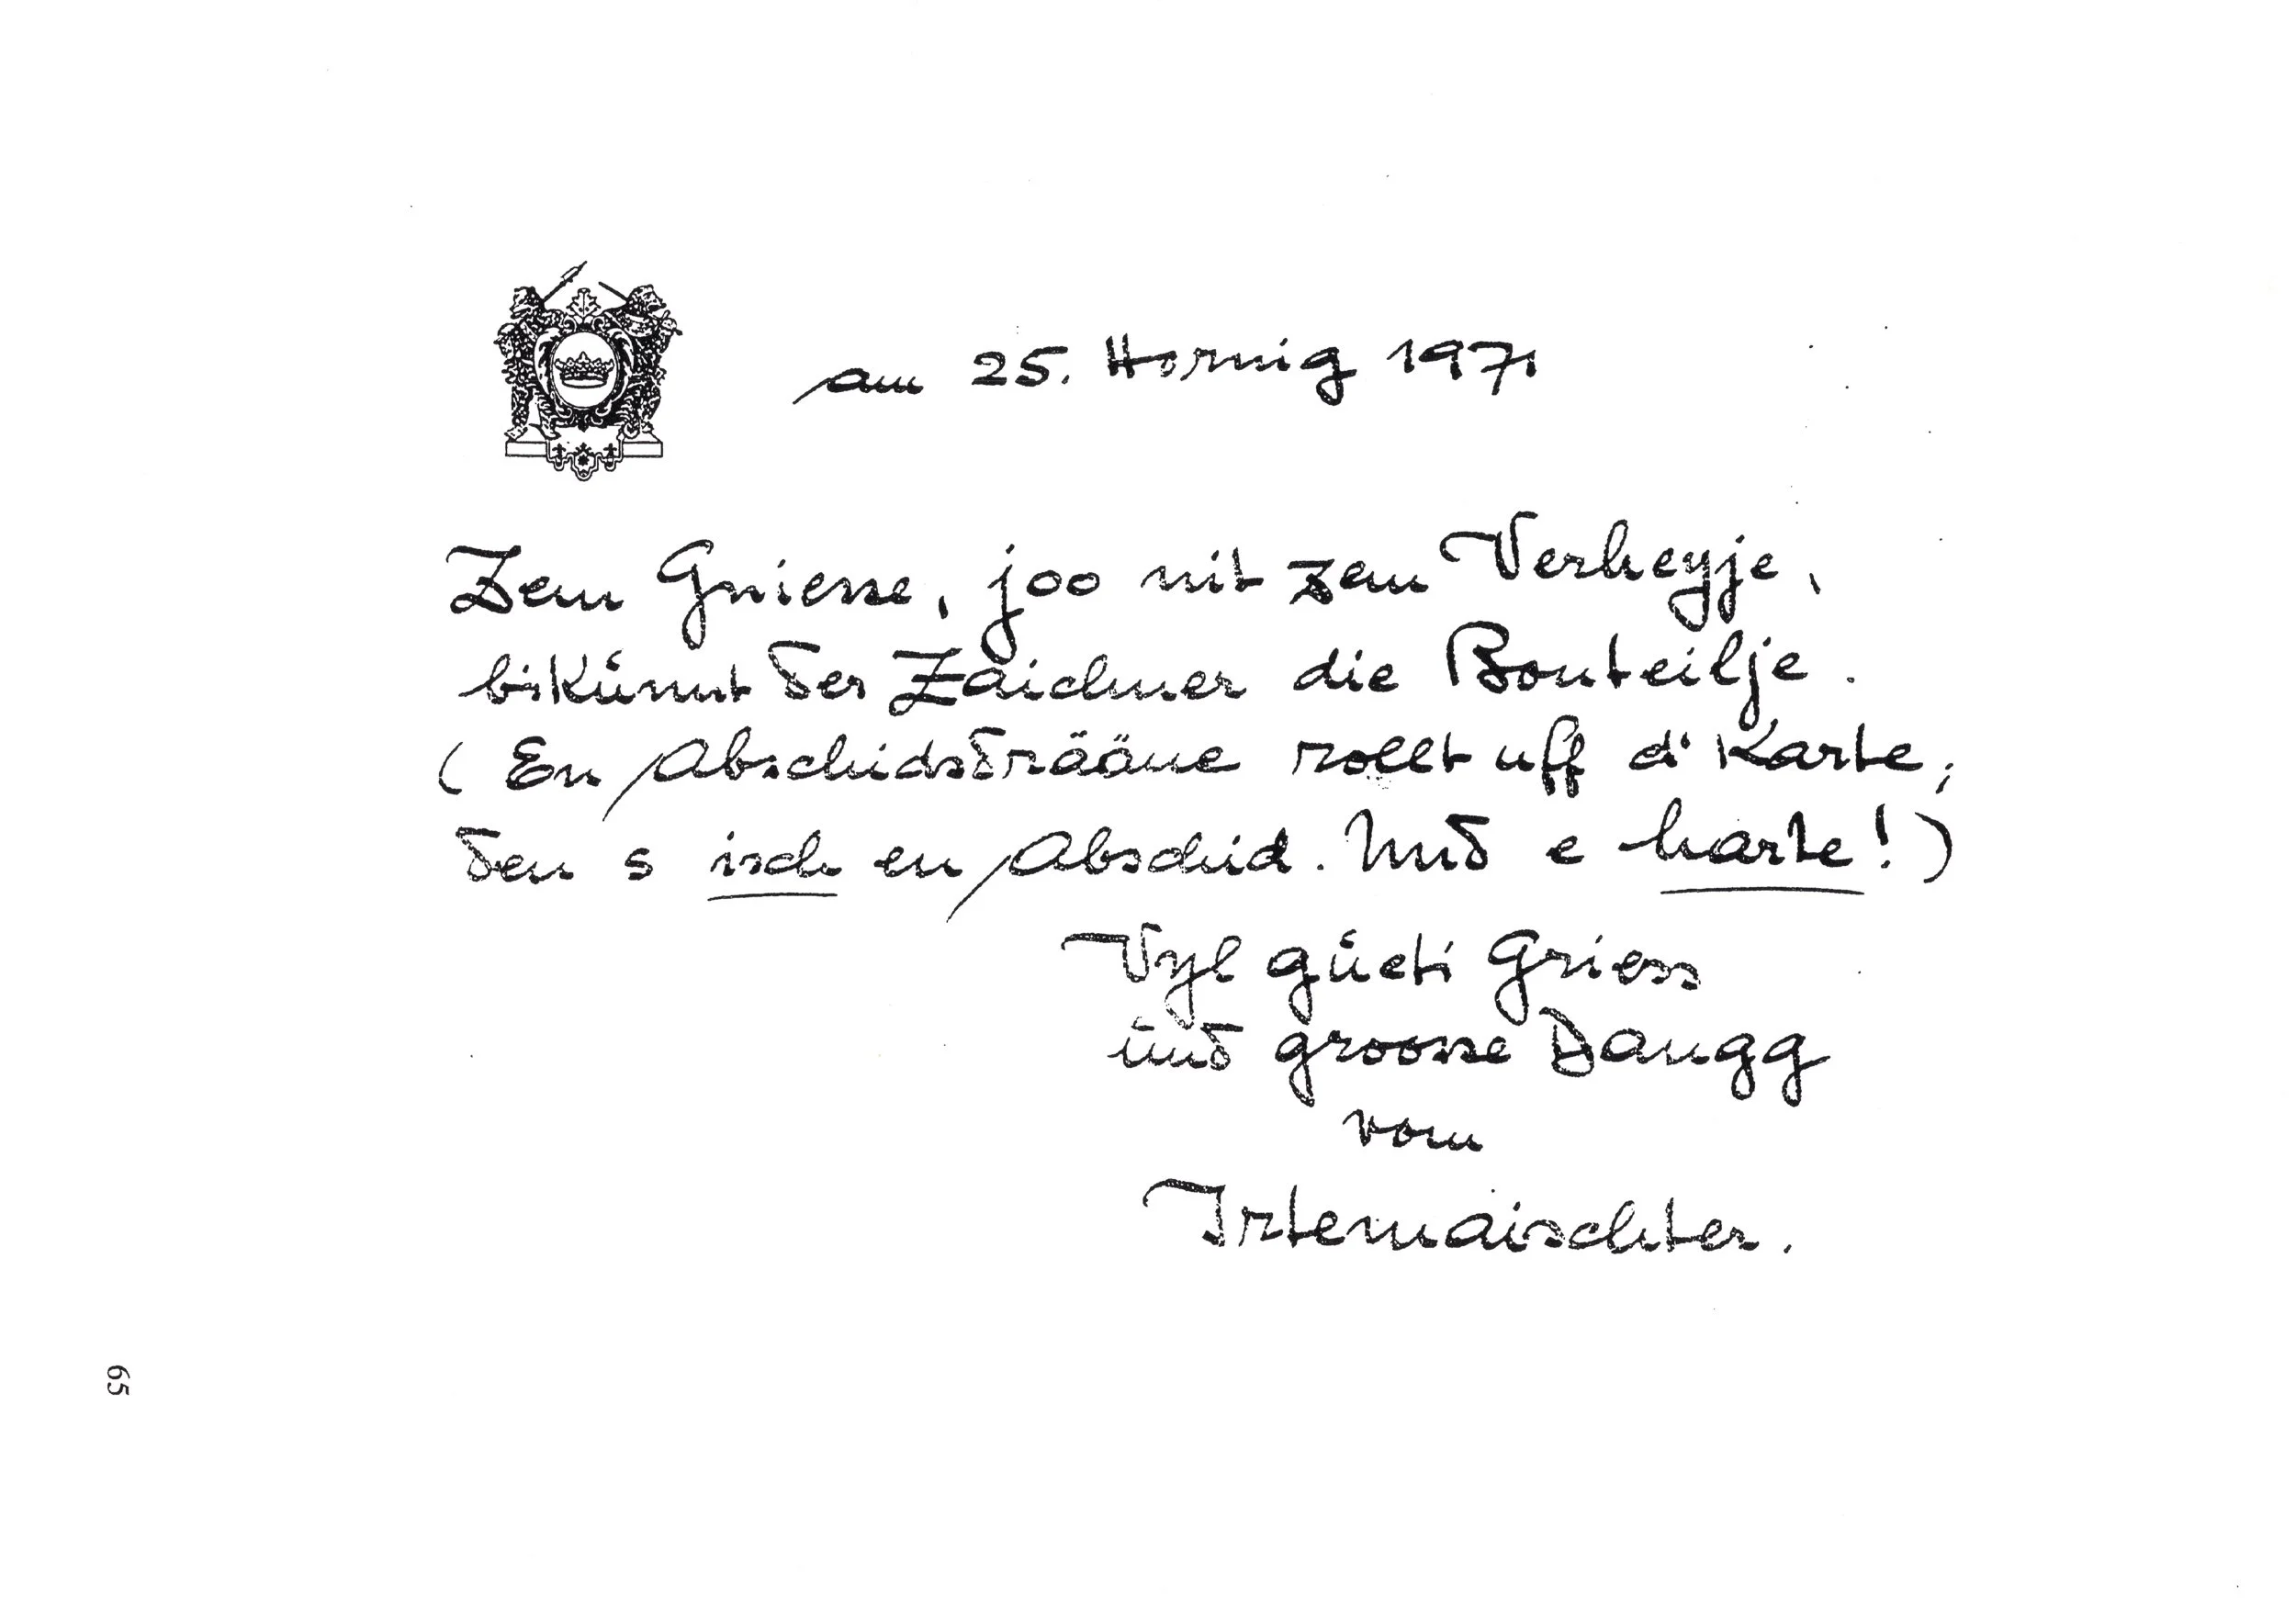 am 25. Hornig 1971
Zem Gniesse, joo nit zem Verheyje,
bikùnnt der Zaichner die Bouteilje.
(En Abschidsdrääne rollt uff d'Karte,
den s isch en Abschid. Und e harte!)
Vyl gùeti Griess
ùnd groosse Dangg
vom
Irtemaischter.
65